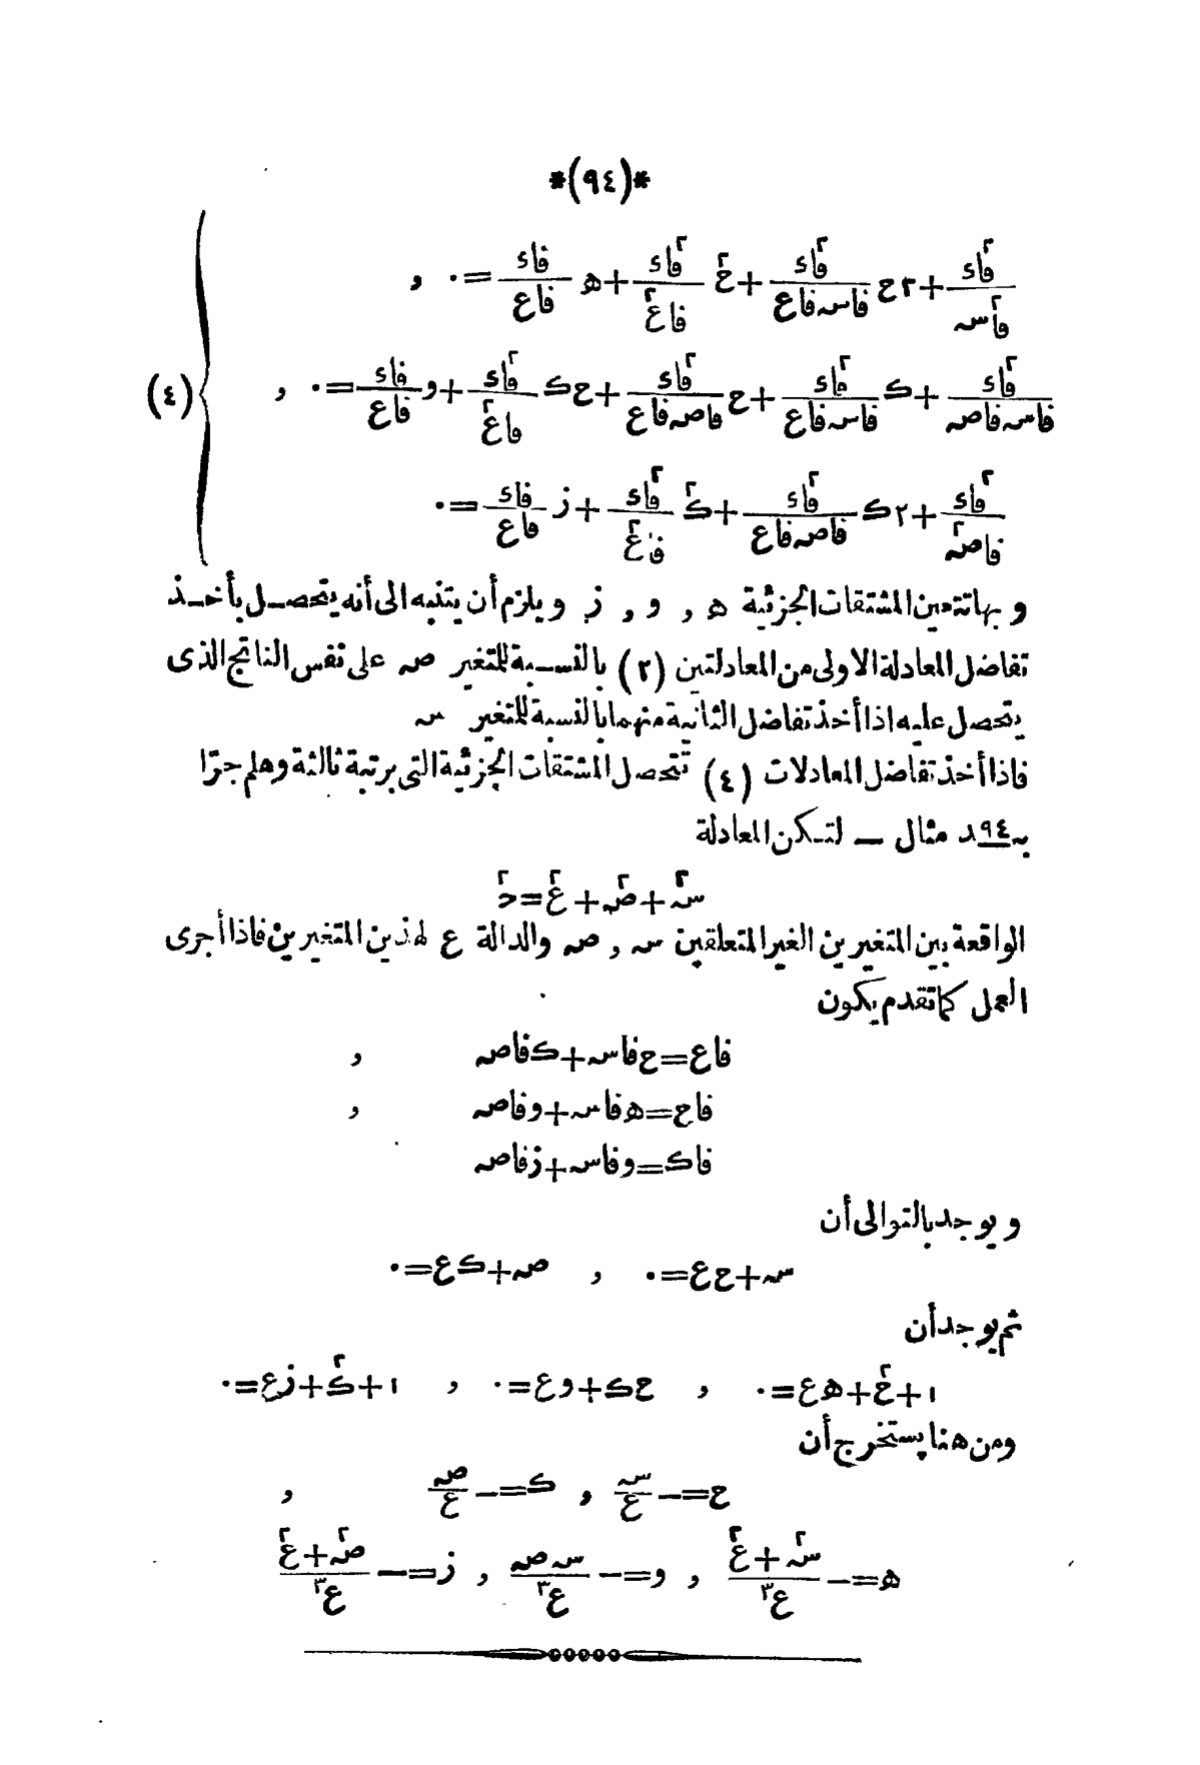 *(٩٤)*
فا٢ء/فاس٢ + ٢ح فا٢ء/فاسہ فاع + ح٢ فا٢ء/فاع٢ + ه فاء/فاع = ٠ ,
(٤) فا٢ء/فاسہ فاصہ + ك فا٢ء/فاسہ فاع + ح فا٢ء/فاصہ فاع + ح ك فا٢ء/فاع٢ + و فاء/فاع = ٠ ,
فا٢ء/فاصہ٢ + ٢ك فا٢ء/فاصہ فاع + ك٢ فا٢ء/فاع٢ + ز فاء/فاع = ٠
وبها تتعين المشتقات الجزئية ه , و , ز ويلزم أن يتنبه الى أنه يتحصل بأخذ
تفاضل المعادلة الاولى من المعادلتين (٢) بالنسبة للتغير صہ على نفس الناتج الذى
يتحصل عليه اذا أخذ تفاضل الثانية منهما بالنسبة للتغير سہ
فاذا أخذ تفاضل المعادلات (٤) تتحصل المشتقات الجزئية التى برتبة ثالثة وهلم جرّا
بـ٩٤ـد مثال — لتكن المعادلة
سہ٢ + صہ٢ + ع٢ = ح٢
الواقعة بين المتغيرين الغير المتعلقين سہ , صہ والدالة ع لهذين المتغيرين فاذا أجرى
العمل كما تقدم يكون
فاع = ح فاسہ + ك فاصہ ,
فاح = ه فاسہ + و فاصہ ,
فاك = و فاسہ + ز فاصہ
ويوجد بالتوالى أن
سہ + ح ع = ٠ , صہ + ك ع = ٠
ثم يوجد أن
١ + ح٢ + ه ع = ٠ , ح ك + و ع = ٠ , ١ + ك٢ + ز ع = ٠
ومن هنا يستخرج أن
ح = — سہ/ع , ك = — صہ/ع ,
ه = — (سہ٢ + ع٢)/ع٣ , و = — سہ صہ/ع٣ , ز = — (صہ٢ + ع٢)/ع٣